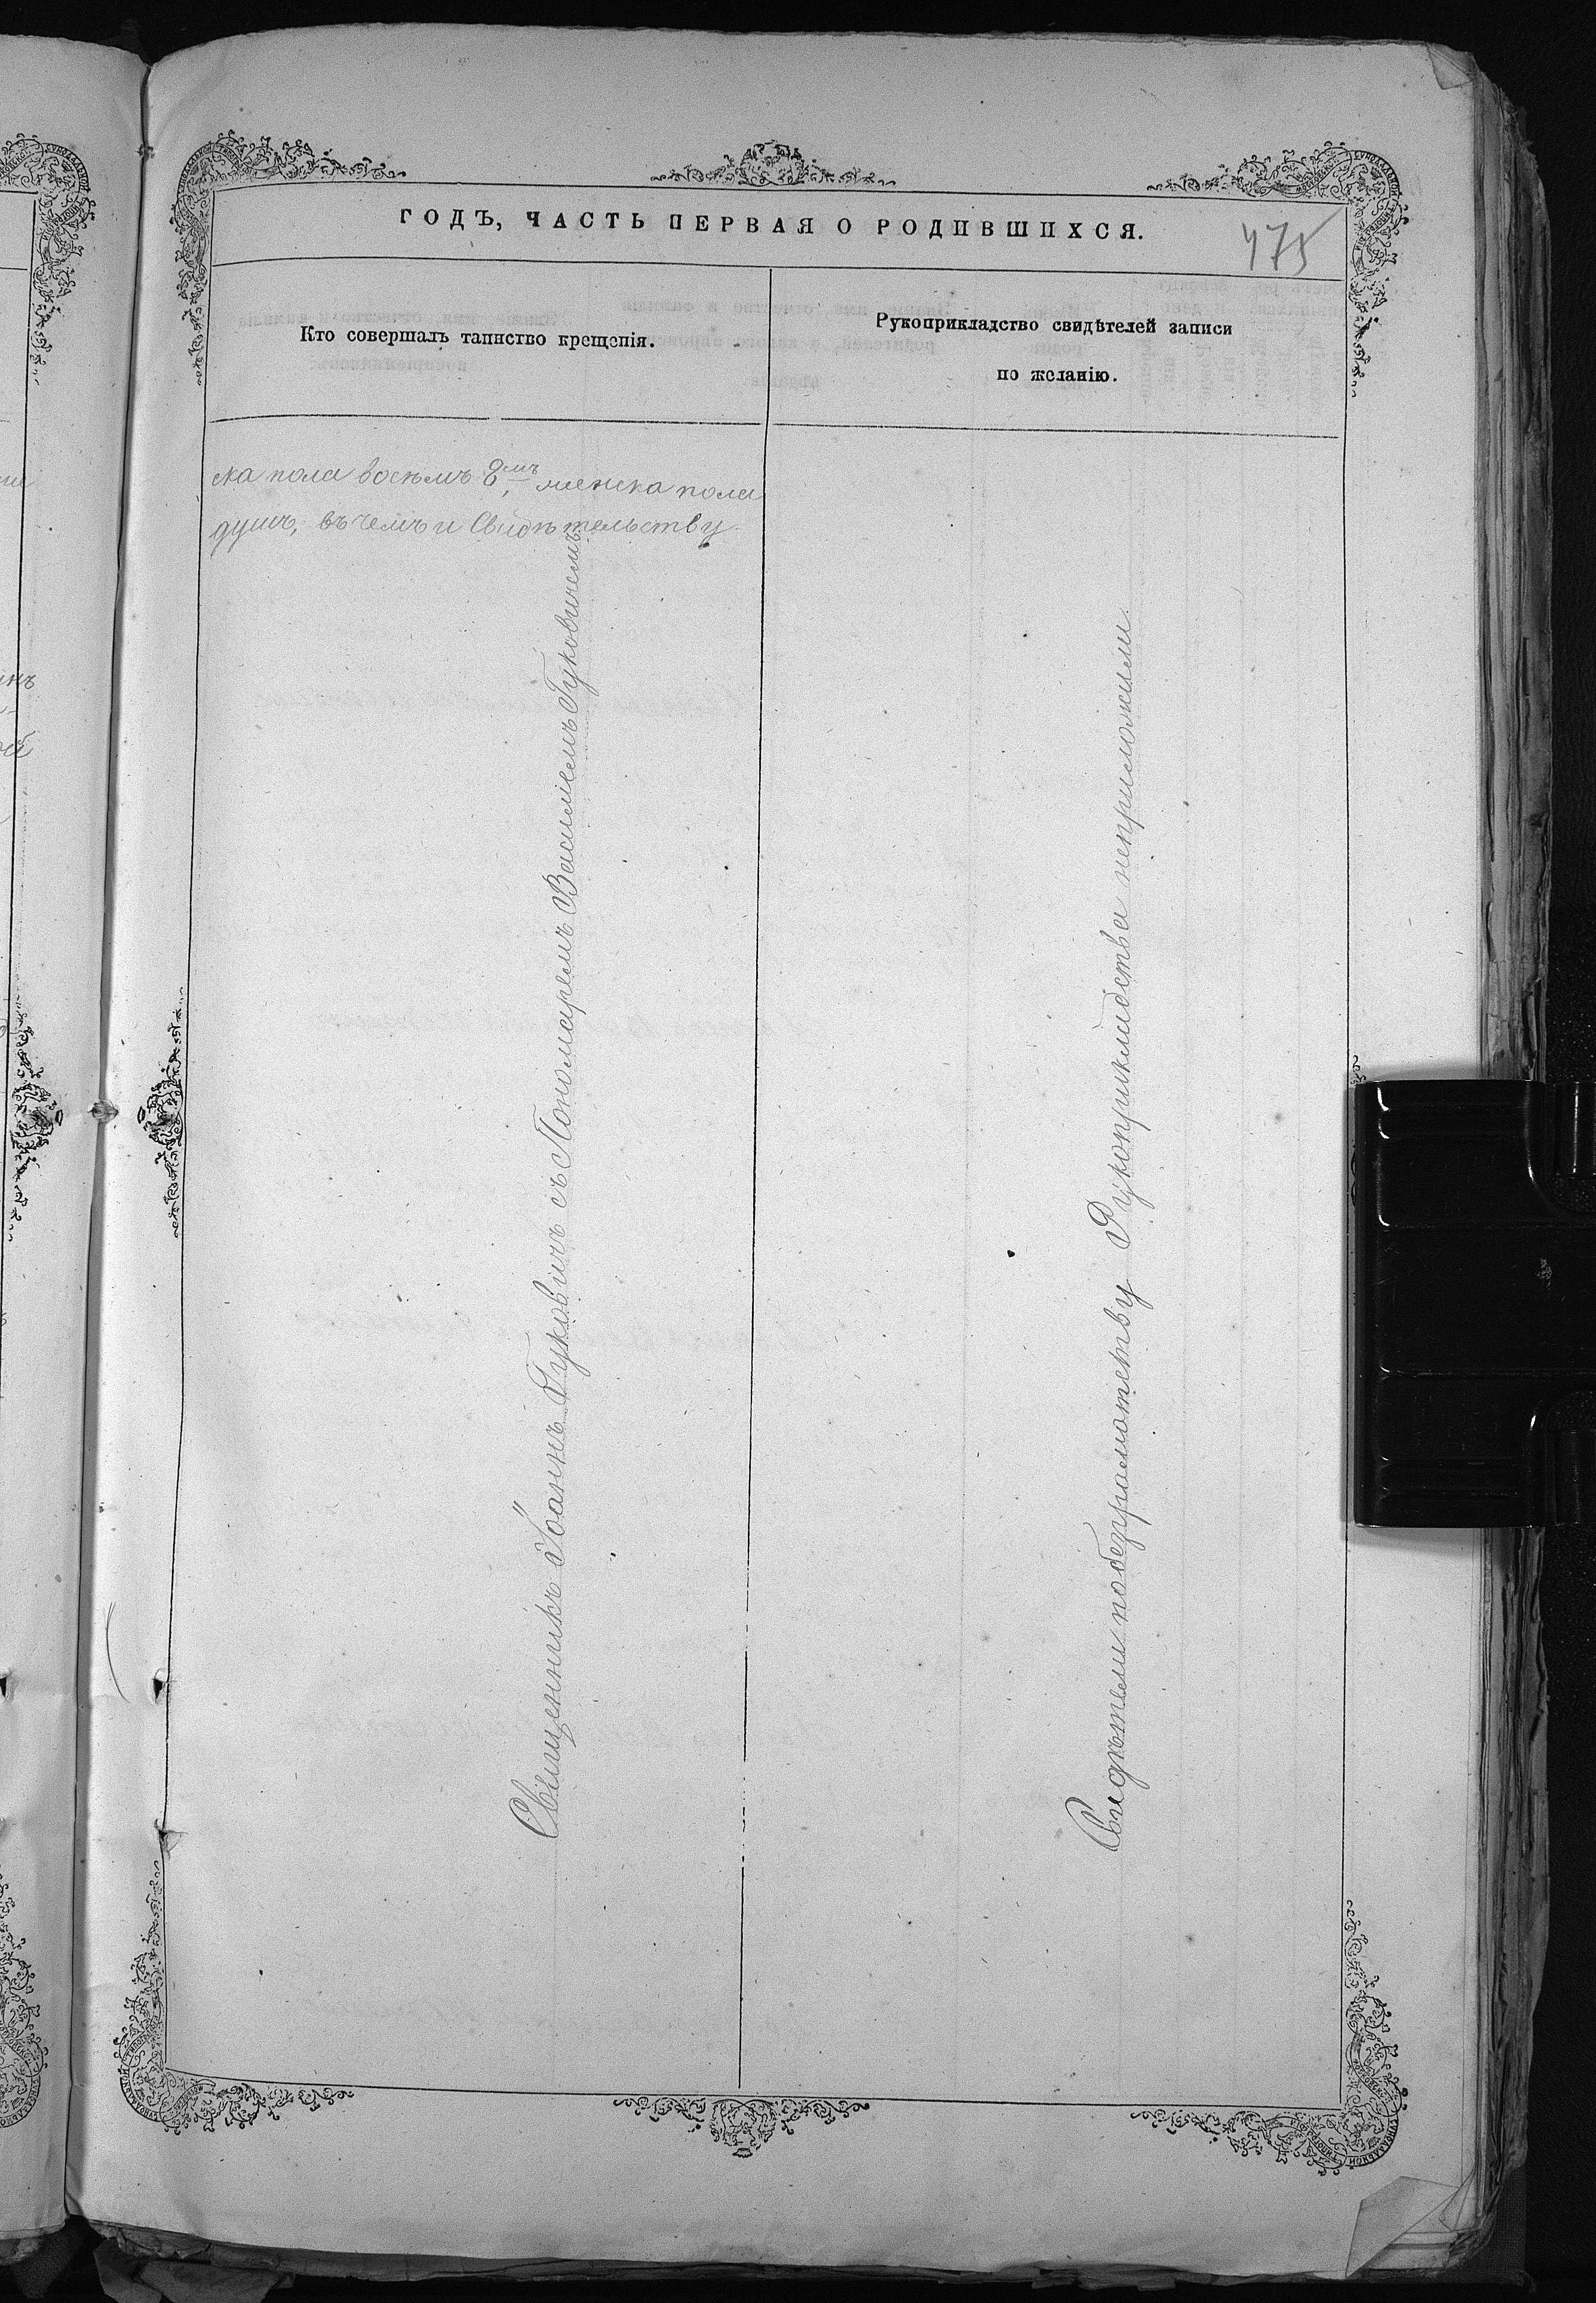 ГОДЪ, ЧАСТЬ ПЕРВАЯ О РОДИВШИХСЯ.
475
Кто совершалъ таинство крещенія.
Рукоприкладство свидѣтелей записи
по желанію.
ска пола восемъ 8мъ, женска пола
душъ, въ чемъ и Свидѣтельству
Священникъ Іоаннъ Гуковичъ съ Пономаремъ Василіемъ Гуковичемъ
Свидѣтели по безграмотству Рукоприкладства неприложили.